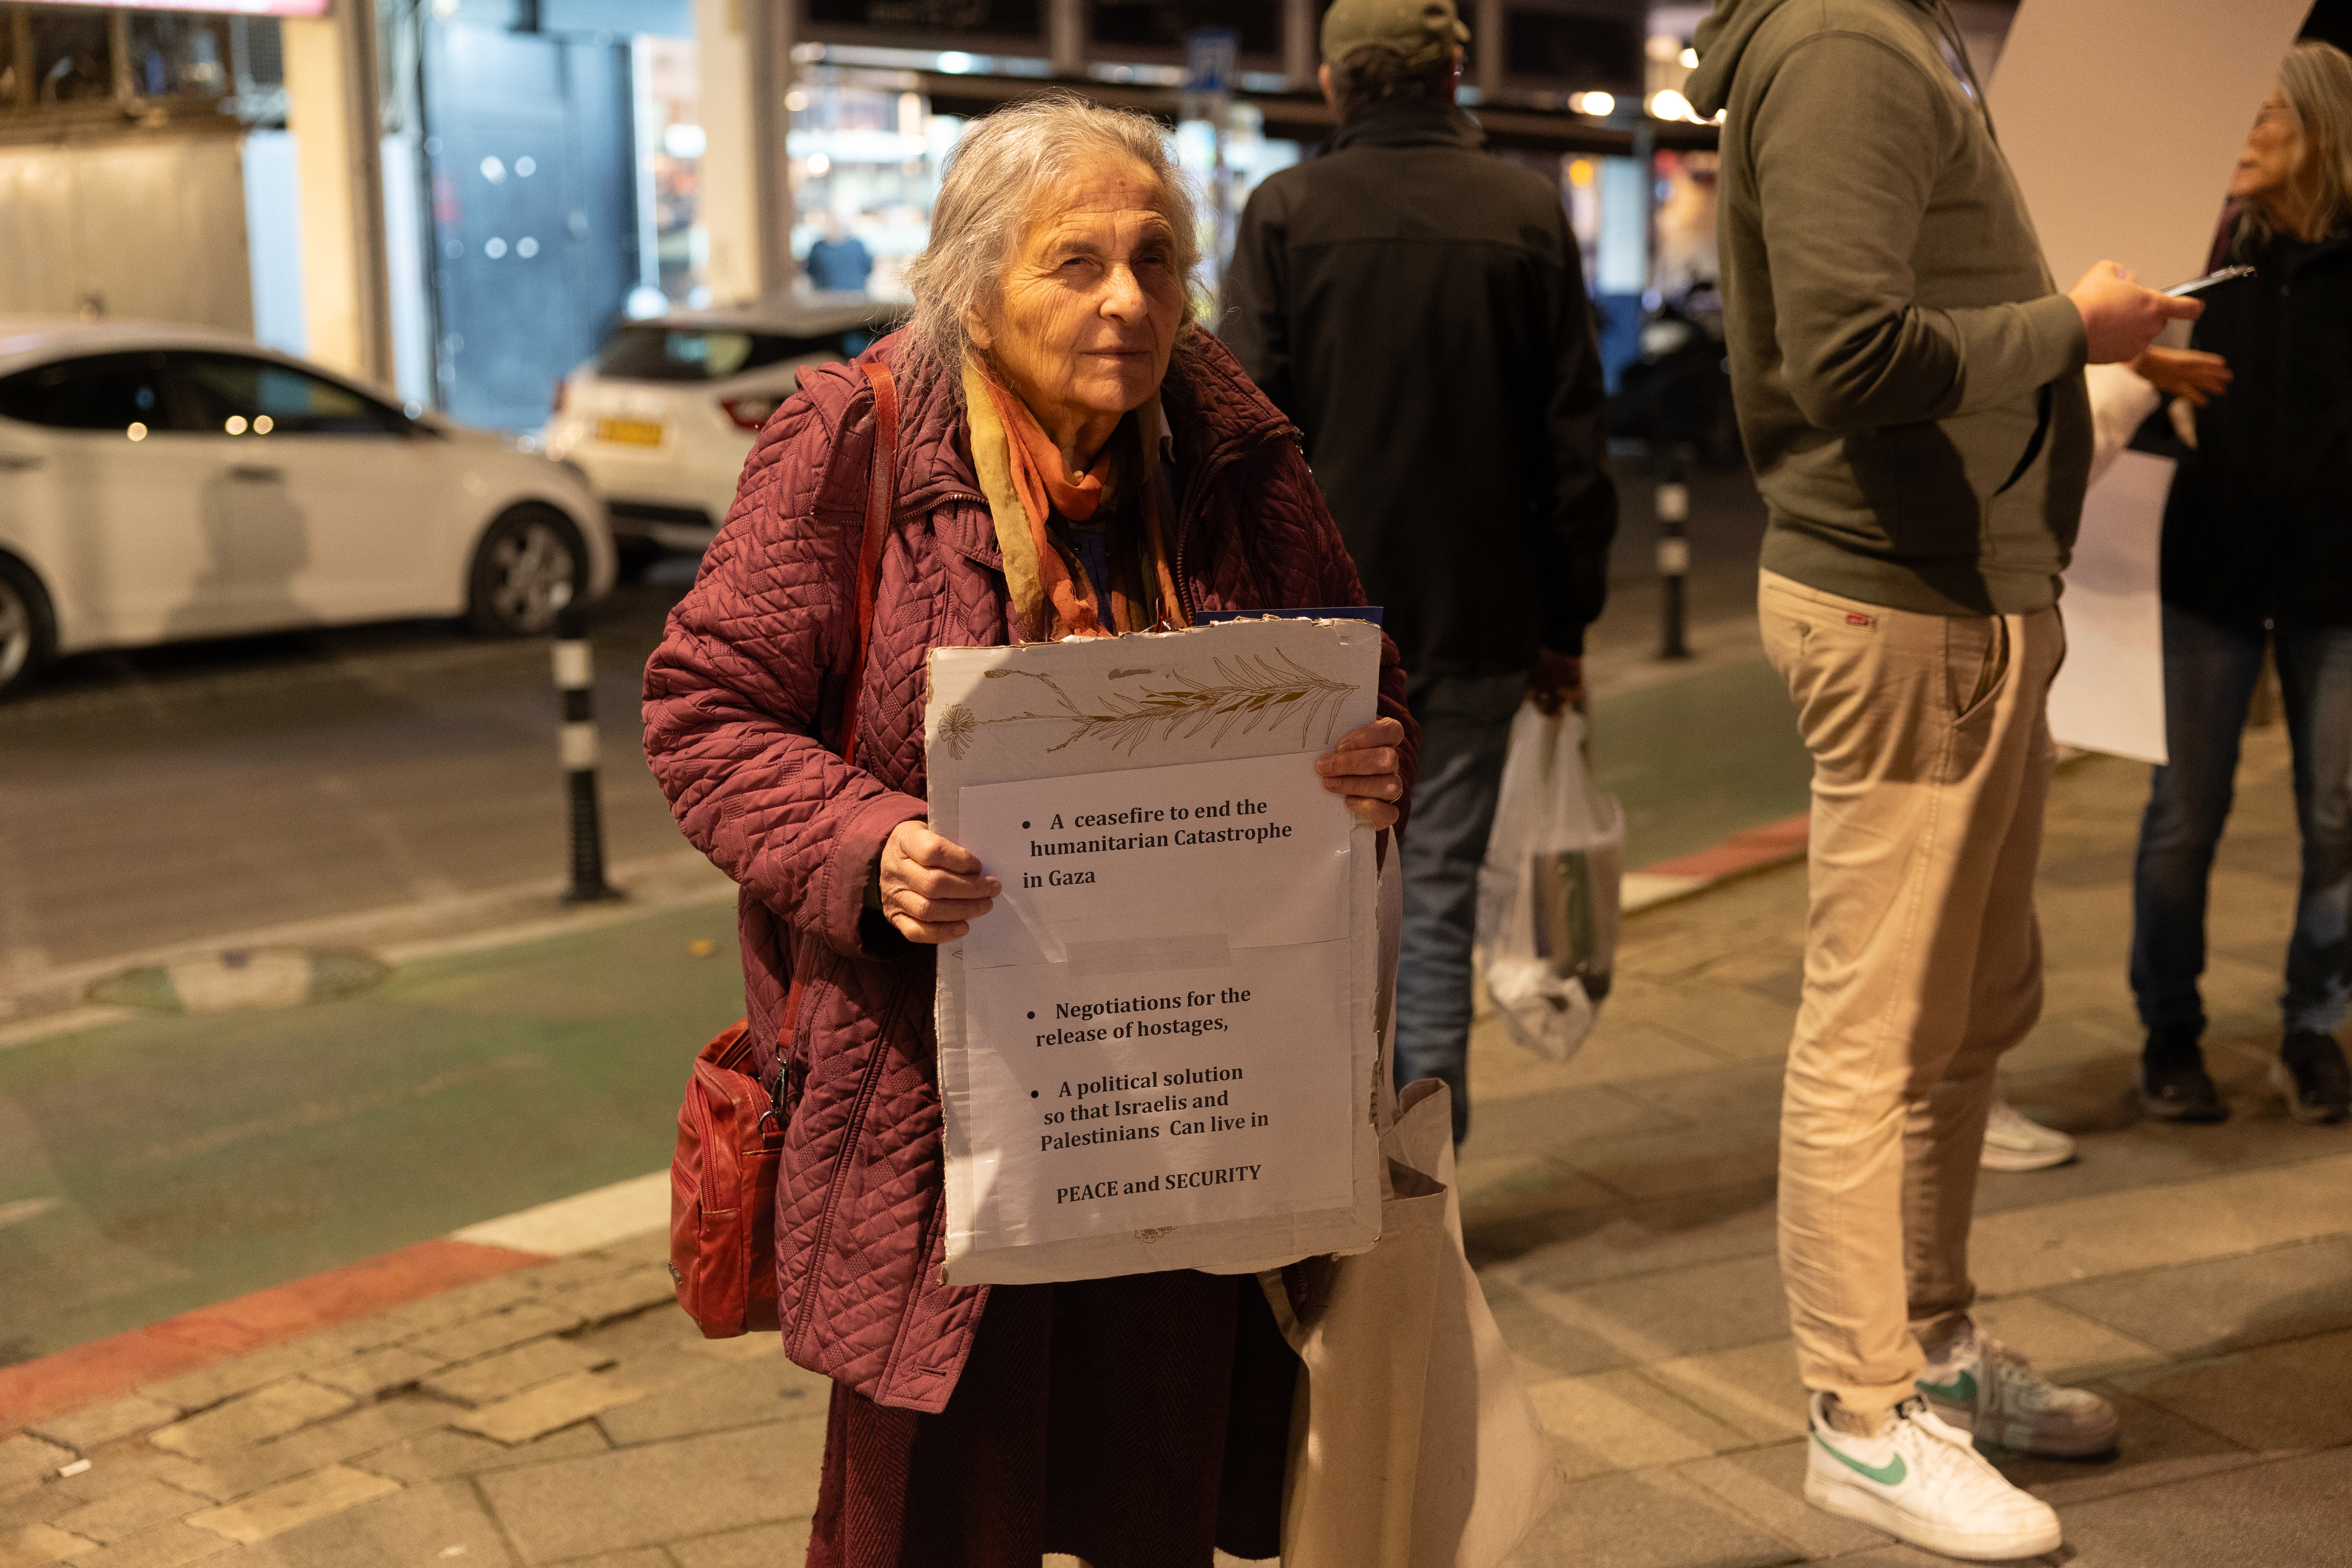 • A ceasefire to end the
humanitarian Catastrophe
in Gaza
• Negotiations for the
release of hostages,
• A political solution
so that Israelis and
Palestinians Can live in
PEACE and SECURITY